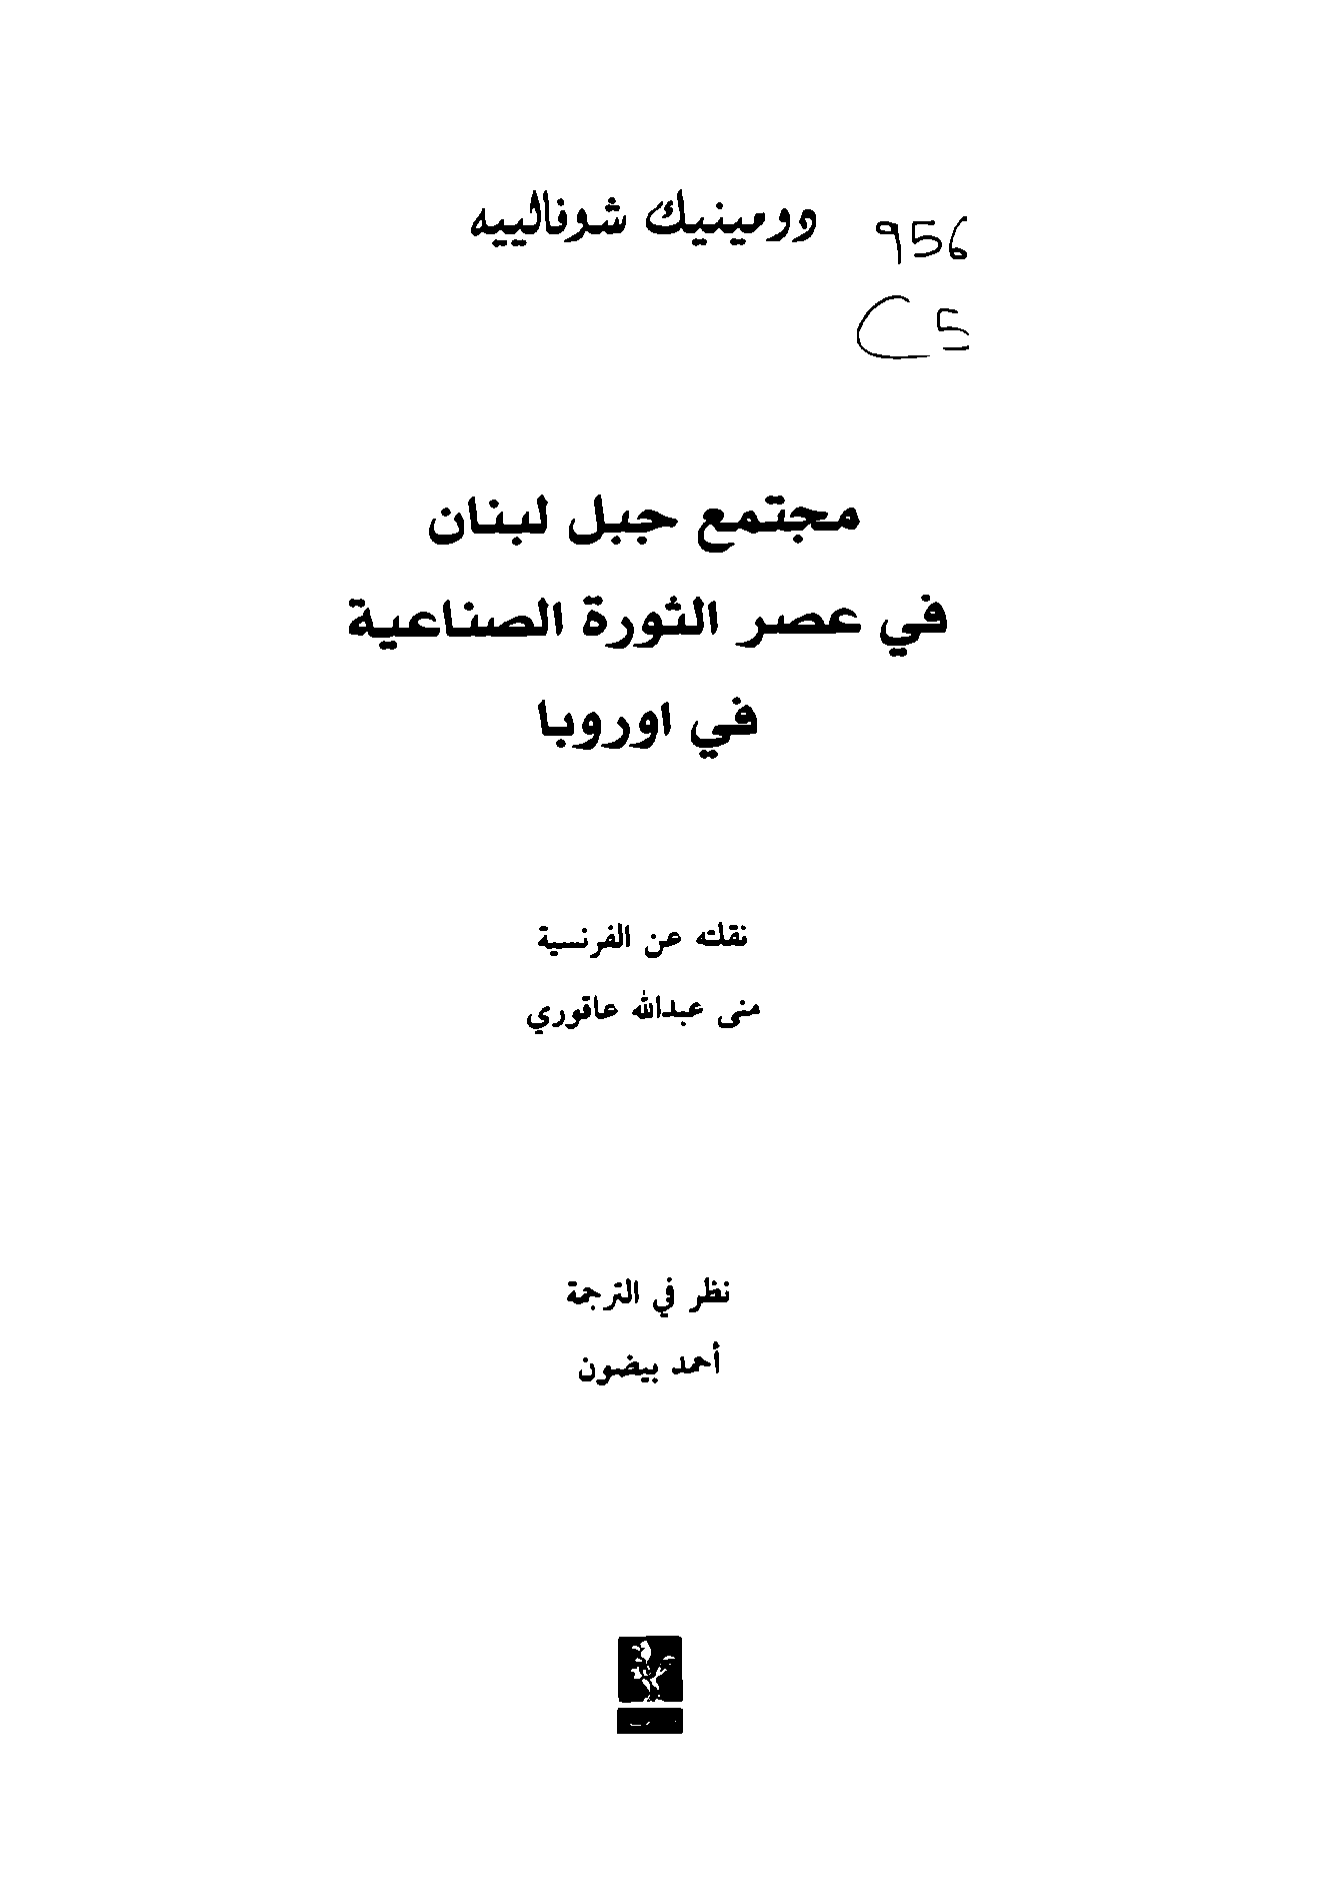 دومينيك شوفالييه
956
C5
مجتمع جبل لبنان
في عصر الثورة الصناعية
في اوروبا
نقلته عن الفرنسية
منى عبدالله عاقوري
نظر في الترجمة
أحمد بيضون